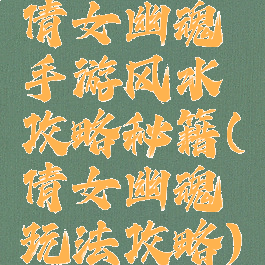 倩女幽魂
手游风水
攻略秘籍(
倩女幽魂
玩法攻略)